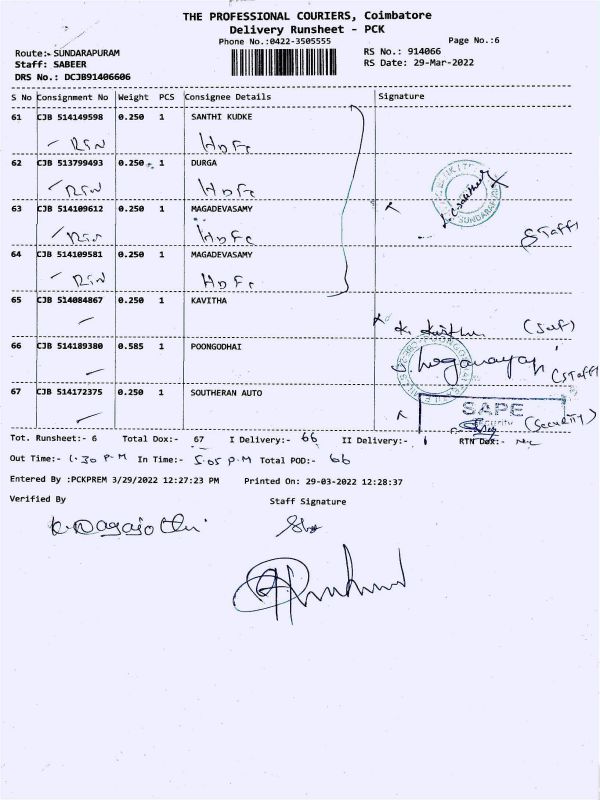 THE PROFESSIONAL COURIERS, Coimbatore
Delivery Runsheet - PCK
Phone No.:0422-3505555
Page No.:6
Route:- SUNDARAPURAM
RS No.: 914066
Staff: SABEER
RS Date: 29-Mar-2022
DRS No.: DCJB91406606
S No Consignment No Weight PCS Consignee Details Signature
61 CJB 514149598 0.250 1 SANTHI KUDKE
RTN HDFC
62 CJB 513799493 0.250 1 DURGA
RTN HDFC
63 CJB 514109612 0.250 1 MAGADEVASAMY
RTN HDFC
SUNDARAPURAM
Staff
64 CJB 514109581 0.250 1 MAGADEVASAMY
RTN HDFC
65 CJB 514084867 0.250 1 KAVITHA
(Self)
66 CJB 514189380 0.585 1 POONGODHAI
(Staff)
67 CJB 514172375 0.250 1 SOUTHERAN AUTO
SAPE
Security
(Security)
Tot. Runsheet:- 6 Total Dox:- 67 I Delivery:- 66 II Delivery:- 1 RTN Dox:-
Out Time:- 1.30 P.M In Time:- 5.05 P.M Total POD:- 66
Entered By :PCKPREM 3/29/2022 12:27:23 PM Printed On: 29-03-2022 12:28:37
Verified By Staff Signature